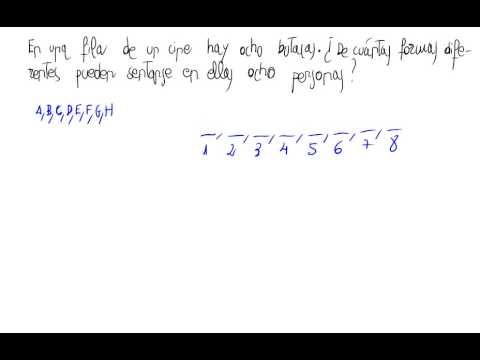 En una fila de un cine hay ocho butacas. ¿De cuántas formas dife-
rentes pueden sentarse en ellas ocho personas?
A,B,C,D,E,F,G,H
1 2 3 4 5 6 7 8